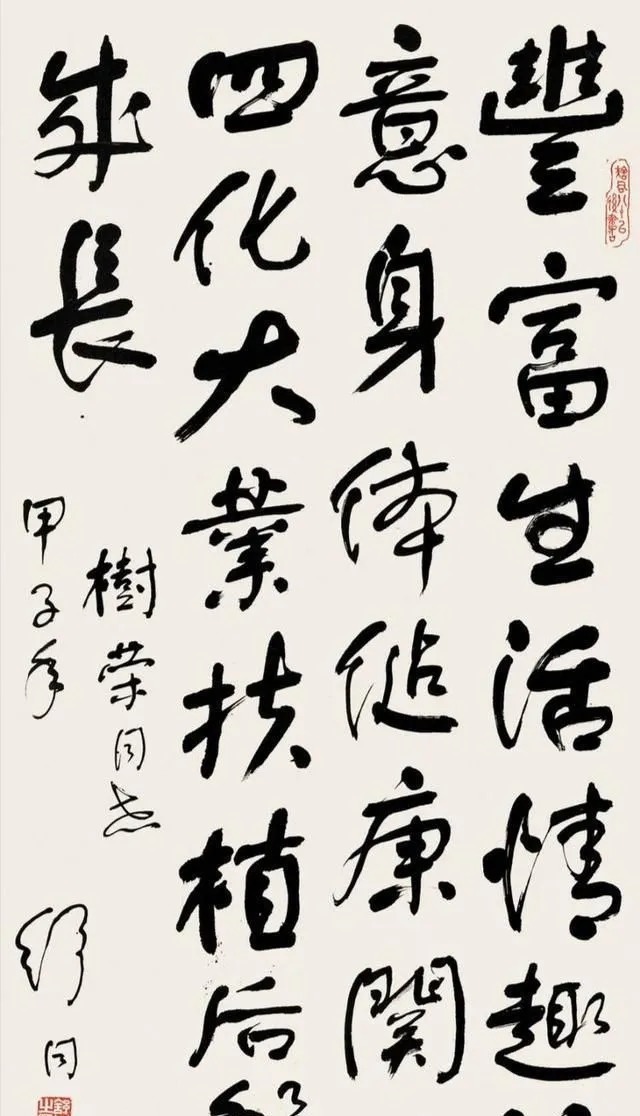 豐富生活情趣
意身体健康關
四化大業扶植后
成長
樹荣同志
甲子年 舒同